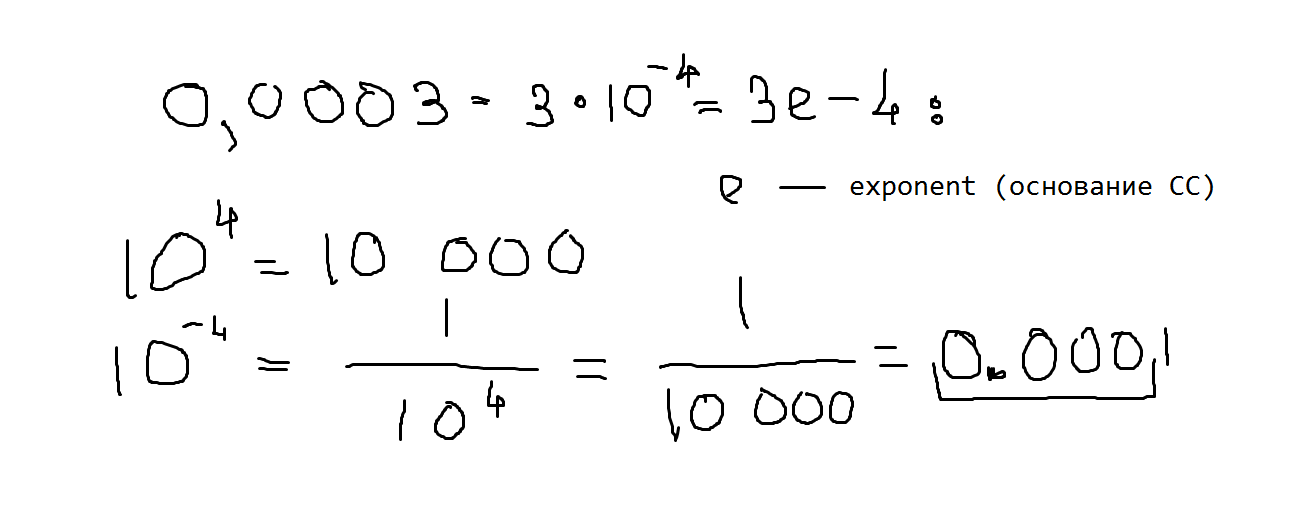 0,0003 - 3 · 10^-4 = 3e-4:
e — exponent (основание СС)
10^4 = 10 000
10^-4 = 1/10^4 = 1/10 000 = 0.0001